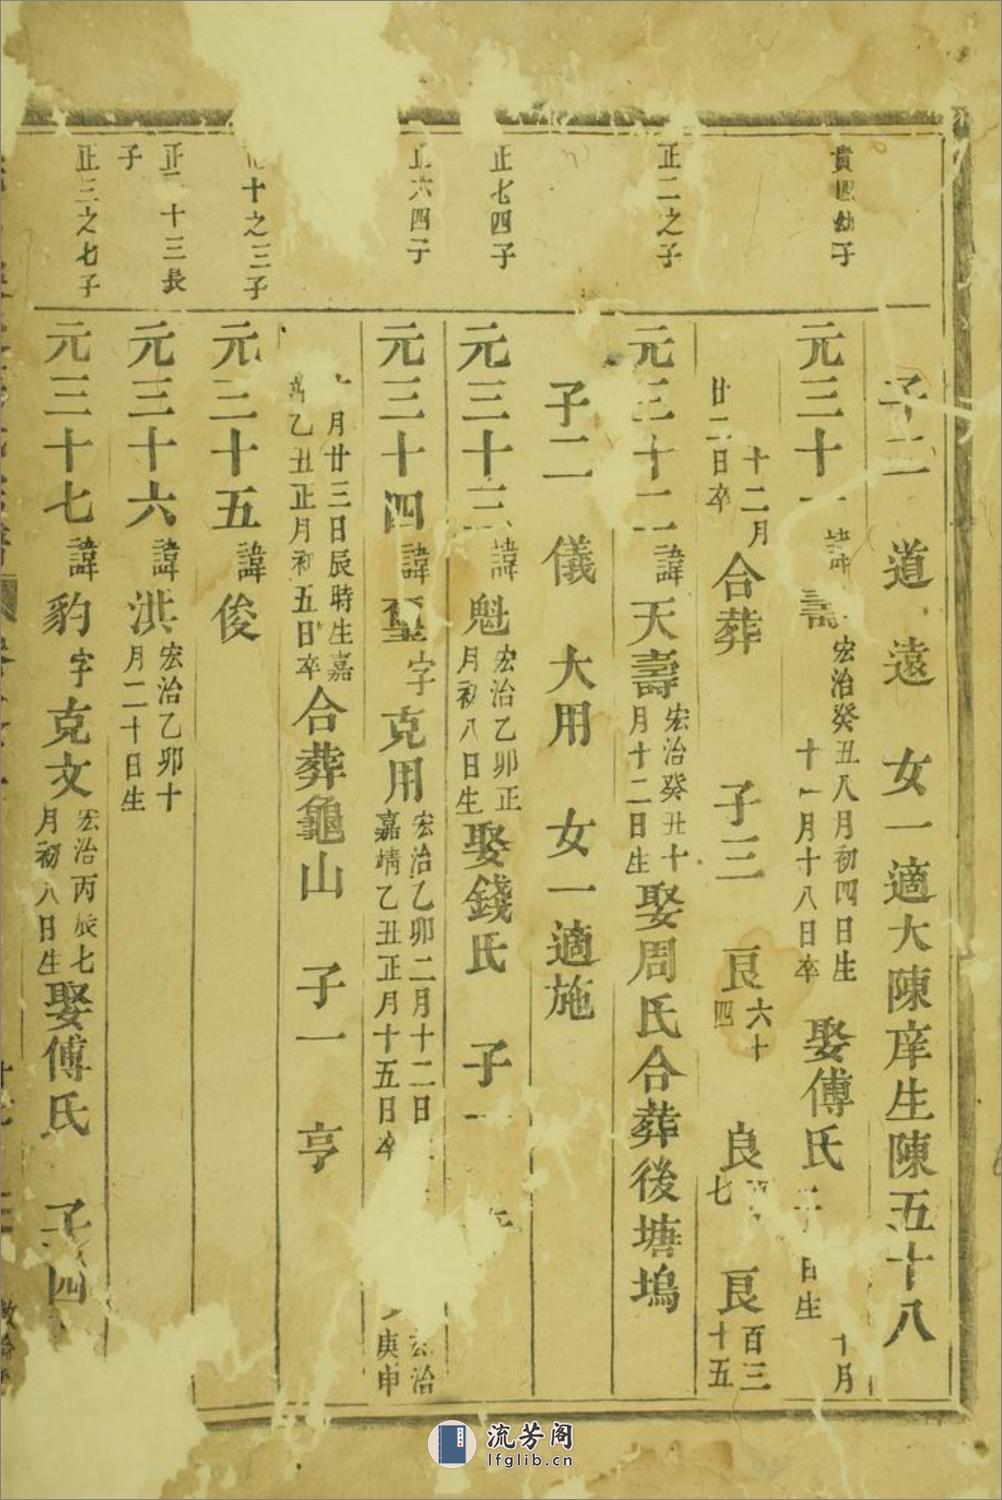 子二 道 遠 女一適大陳庠生陳五十八
貴四幼子
元三十一 諱壽 宏治癸丑八月初四日生
十一月十八日卒
娶傅氏
日生
十月
廿二日卒
十二月
合葬 子三 良六十四 良七 良百三十五
正二之子
元三十二 諱天壽 宏治癸丑十月十二日生 娶周氏合葬後塘塢
子二 儀 大用 女一適施
正七四子
元三十三 諱魁 宏治乙卯正月初八日生 娶錢氏 子一
正六四子
元三十四 諱 字克用 宏治乙卯二月十二日
嘉靖乙丑正月十五日卒
宏治
庚申
月廿三日辰時生嘉
乙丑正月初五日卒
合葬龜山 子一 亨
十之三子
元三十五 諱俊
正十三長子
元三十六 諱洪 宏治乙卯十月二十日生
正三之七子
元三十七 諱豹 字克文 宏治丙辰七月初八日生 娶傅氏 子四
流芳阁
lfglib.cn